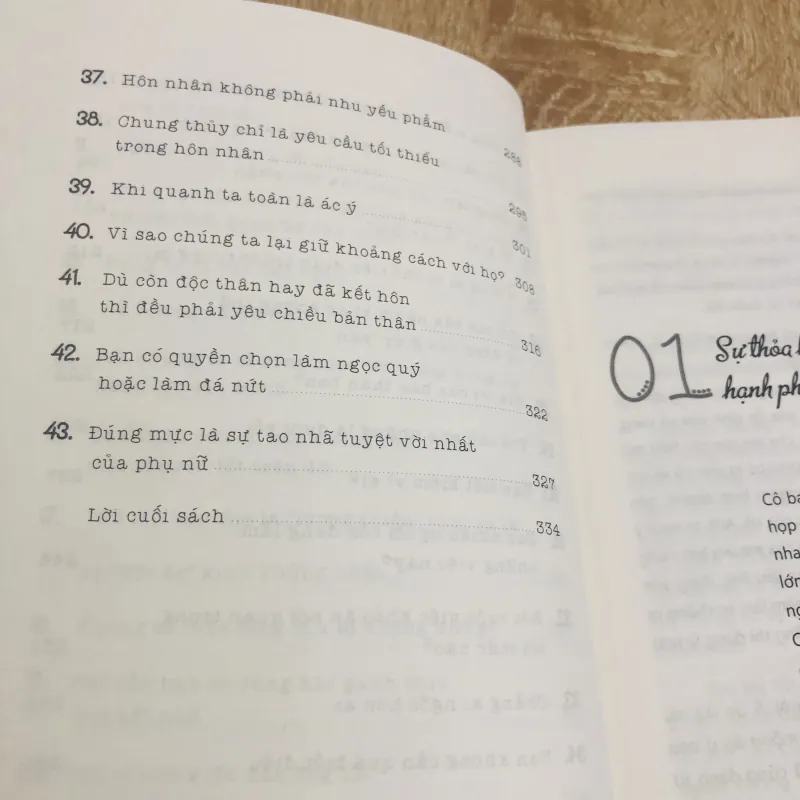 37. Hôn nhân không phải nhu yếu phẩm 288
38. Chung thủy chỉ là yêu cầu tối thiểu
trong hôn nhân 295
39. Khi quanh ta toàn là ác ý 301
40. Vì sao chúng ta lại giữ khoảng cách với họ? 308
41. Dù còn độc thân hay đã kết hôn
thì đều phải yêu chiều bản thân 316
42. Bạn có quyền chọn làm ngọc quý
hoặc làm đá nứt 322
43. Đúng mực là sự tao nhã tuyệt vời nhất
của phụ nữ 327
Lời cuối sách 334
01 Sự thỏa
hạnh ph
Cô ba
họp
nha
lớn